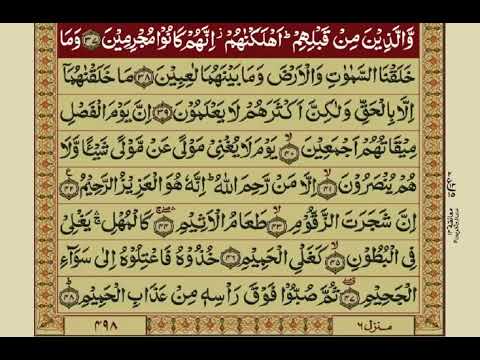 وَّالَّذِيۡنَ مِنۡ قَبۡلِهِمۡ ؕ اَهۡلَكۡنٰهُمۡ ؗ اِنَّهُمۡ كَانُوۡا مُجۡرِمِيۡنَ ﴿۳۷﴾ وَمَا
خَلَقۡنَا السَّمٰوٰتِ وَالۡاَرۡضَ وَمَا بَيۡنَهُمَا لٰعِبِيۡنَ ﴿۳۸﴾ مَا خَلَقۡنٰهُمَاۤ
اِلَّا بِالۡحَقِّ وَلٰكِنَّ اَكۡثَرَهُمۡ لَا يَعۡلَمُوۡنَ ﴿۳۹﴾ اِنَّ يَوۡمَ الۡفَصۡلِ
مِيۡقَاتُهُمۡ اَجۡمَعِيۡنَ ﴿۴۰﴾ يَوۡمَ لَا يُغۡنِىۡ مَوۡلًى عَنۡ مَّوۡلًى شَيۡئًا وَّلَا
هُمۡ يُنۡصَرُوۡنَ ﴿۴۱﴾ اِلَّا مَنۡ رَّحِمَ اللّٰهُ ؕ اِنَّهٗ هُوَ الۡعَزِيۡزُ الرَّحِيۡمُ ﴿۴۲﴾
اِنَّ شَجَرَتَ الزَّقُّوۡمِ ﴿۴۳﴾ طَعَامُ الۡاَثِيۡمِ ﴿۴۴﴾ كَالۡمُهۡلِ ۛۚ يَغۡلِىۡ
فِى الۡبُطُوۡنِ ﴿۴۵﴾ كَغَلۡىِ الۡحَمِيۡمِ ﴿۴۶﴾ خُذُوۡهُ فَاعۡتِلُوۡهُ اِلٰى سَوَآءِ
الۡجَحِيۡمِ ﴿۴۷﴾ ثُمَّ صُبُّوۡا فَوۡقَ رَاۡسِهٖ مِنۡ عَذَابِ الۡحَمِيۡمِ ﴿۴۸﴾
منزل ۶
۴۹۸